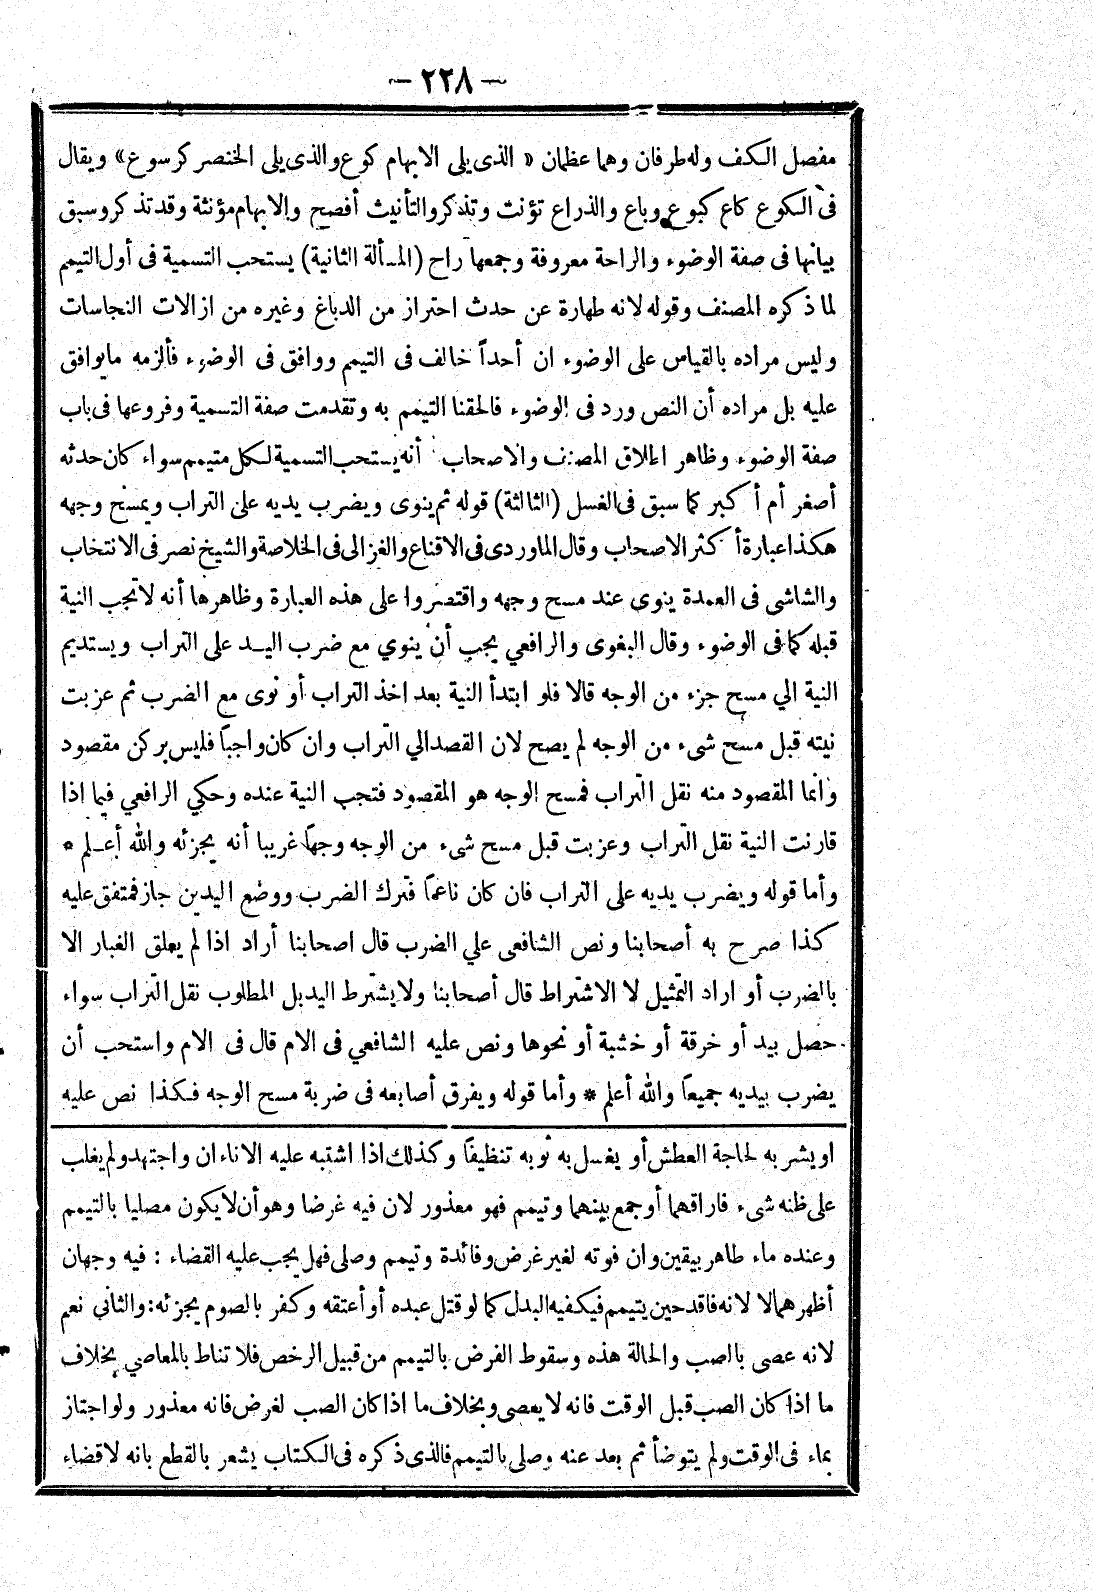 — ٢٢٨ —
مفصل الكف وله طرفان وهما عظمان « الذى يلى الابهام كوع والذى يلى الخنصر كرسوع» ويقال
فى الكوع كاع كبوع وباع والذراع تؤنث وتذكر والتأنيث أفصح والابهام مؤنثة وقد تذكر وسبق
بيانها فى صفة الوضوء والراحة معروفة وجمعها راح (المسألة الثانية) يستحب التسمية فى أول التيمم
لما ذكره المصنف وقوله لانه طهارة عن حدث احتراز من الدباغ وغيره من ازالات النجاسات
وليس مراده بالقياس على الوضوء ان أحداً خالف فى التيمم ووافق فى الوضوء فألزمه مايوافق
عليه بل مراده أن النص ورد فى الوضوء فالحقنا التيمم به وتقدمت صفة التسمية وفروعها فى باب
صفة الوضوء وظاهر اطلاق المصنف والاصحاب أنه يستحب التسمية لكل متيمم سواء كان حدثه
أصغر أم أكبر كما سبق فى الغسل (الثالثة) قوله ثم ينوى ويضرب يديه على التراب ويمسح وجهه
هكذا عبارة أكثر الاصحاب وقال الماوردى فى الاقناع والغزالى فى الخلاصة والشيخ نصر فى الانتخاب
والشاشى فى العمدة ينوى عند مسح وجهه واقتصروا على هذه العبارة وظاهرها أنه لاتجب النية
قبله كما فى الوضوء وقال البغوى والرافعي يجب أن ينوي مع ضرب اليـد على التراب ويستديم
النية الي مسح جزء من الوجه قالا فلو ابتدأ النية بعد اخذ التراب أو نوى مع الضرب ثم عزبت
نيته قبل مسح شىء من الوجه لم يصح لان القصد الي التراب وان كان واجباً فليس بركن مقصود
وانما المقصود منه نقل التراب فمسح الوجه هو المقصود فتجب النية عنده وحكي الرافعي فيما اذا
قارنت النية نقل التراب وعزبت قبل مسح شىء من الوجه وجهاً غريبا أنه يجزئه والله أعـلم *
وأما قوله ويضرب يديه على التراب فان كان ناعماً فترك الضرب ووضع اليدين جاز فمتفق عليه
كذا صرح به أصحابنا ونص الشافعى علي الضرب قال اصحابنا أراد اذا لم يعلق الغبار الا
بالضرب أو اراد التمثيل لا الاشتراط قال أصحابنا ولا يشترط اليد بل المطلوب نقل التراب سواء
حصل بيد أو خرقة أو خشبة أو نحوها ونص عليه الشافعي فى الام قال فى الام واستحب أن
يضرب بيديه جميعاً والله أعلم * وأما قوله ويفرق أصابعه فى ضربة مسح الوجه فكذا نص عليه
او يشربه لحاجة العطش أو يغسل به ثوبه تنظيفاً وكذلك اذا اشتبه عليه الاناءان واجتهد ولم يغلب
على ظنه شىء فاراقهما أو جمع بينهما وتيمم فهو معذور لان فيه غرضا وهو أن لا يكون مصليا بالتيمم
وعنده ماء طاهر بيقين وان فوته لغير غرض وفائدة وتيمم وصلى فهل يجب عليه القضاء : فيه وجهان
أظهرهما لا لانه فاقد حين يتيمم فيكفيه البدل كما لو قتل عبده أو أعتقه وكفر بالصوم يجزئه: والثاني نعم
لانه عصى بالصب والحالة هذه وسقوط الفرض بالتيمم من قبيل الرخص فلا تناط بالمعاصي بخلاف
ما اذا كان الصب قبل الوقت فانه لا يعصى وبخلاف ما اذا كان الصب لغرض فانه معذور ولو اجتاز
بماء فى الوقت ولم يتوضأ ثم بعد عنه وصلى بالتيمم فالذى ذكره فى الكتاب يشعر بالقطع بانه لا قضاء